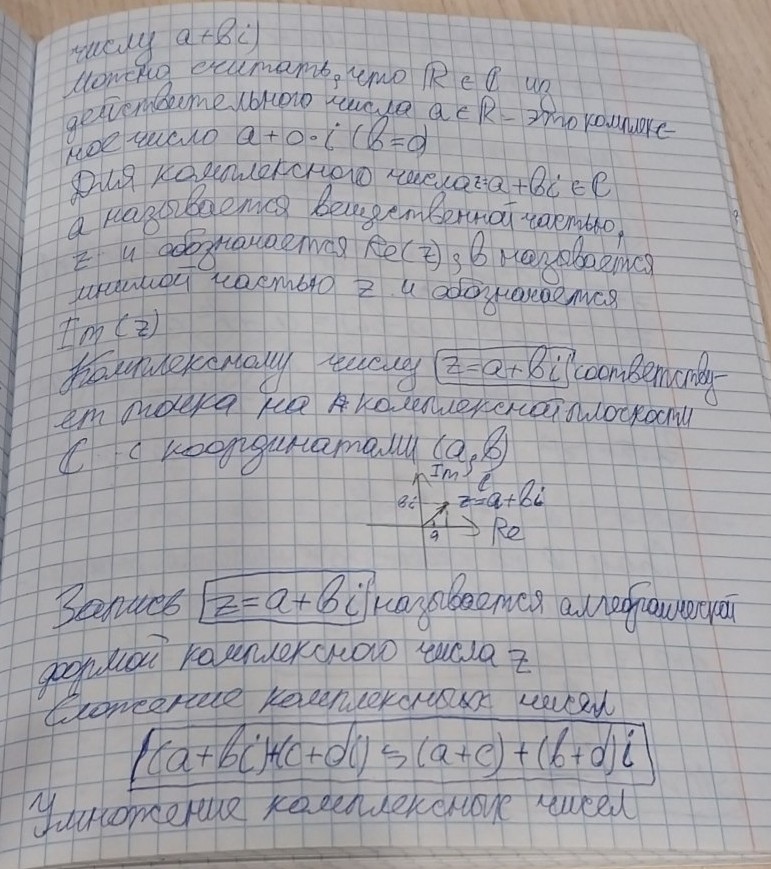 числу a+bi)
Можно считать, что R ∈ C и
действительного числа a ∈ R - это комплекс-
ное число a+0·i (b=0)
Для комплексного числа z=a+bi ∈ C
a называется вещественной частью,
z и обозначается Re(z), b называется
мнимой частью z и обозначается
Im(z)
Комплексному числу z=a+bi соответству-
ет точка на комплексной плоскости
C с координатами (a,b)
Im C
bi z=a+bi
a Re
Запись z=a+bi называется алгебраической
формой комплексного числа z
Сложение комплексных чисел
(a+bi)+(c+di)=(a+c)+(b+d)i
Умножение комплексных чисел